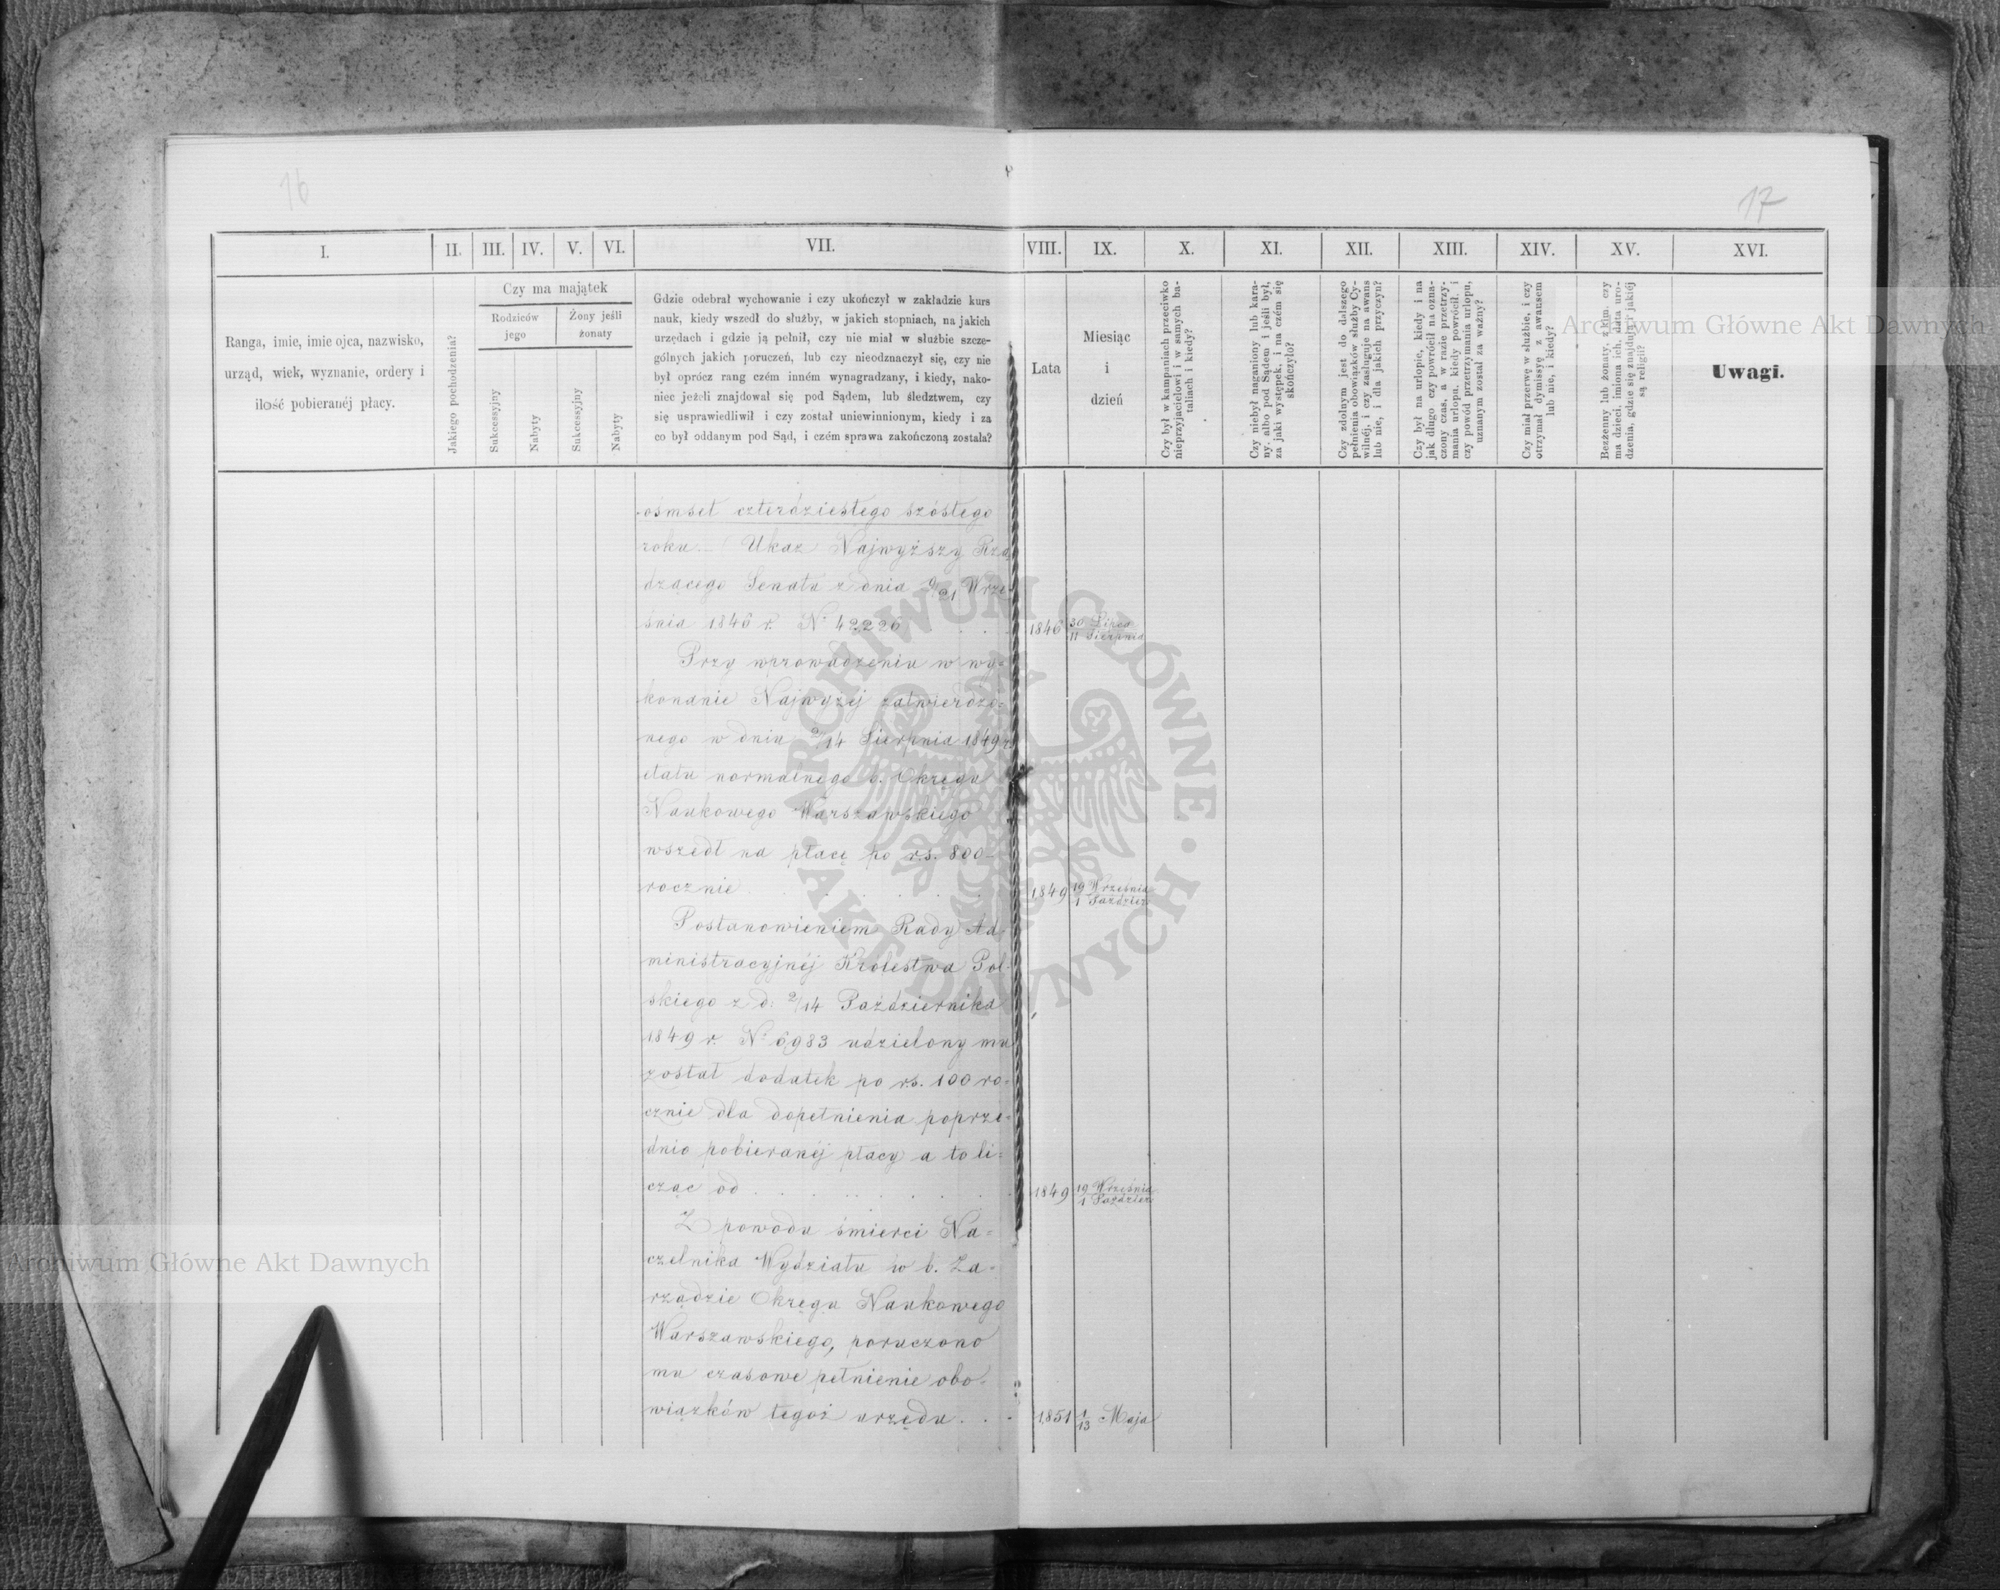 16
17
I. II. III. IV. V. VI. VII. VIII. IX. X. XI. XII. XIII. XIV. XV. XVI.
Ranga, imie, imie ojca, nazwisko,
urząd, wiek, wyznanie, ordery i
ilość pobieranéj płacy.
Jakiego pochodzenia?
Czy ma majątek
Rodziców
jego
Żony jeśli
żonaty
Sukcessyjny
Nabyty
Sukcessyjny
Nabyty
Gdzie odebrał wychowanie i czy ukończył w zakładzie kurs
nauk, kiedy wszedł do służby, w jakich stopniach, na jakich
urzędach i gdzie ją pełnił, czy nie miał w służbie szcze-
gólnych jakich poruczeń, lub czy nieodznaczył się, czy nie
był oprócz rang czém inném wynagradzany, i kiedy, nako-
niec jeżeli znajdował się pod Sądem, lub śledztwem, czy
się usprawiedliwił i czy został uniewinnionym, kiedy i za
co był oddanym pod Sąd, i czém sprawa zakończoną została?
Lata
Miesiąc
i
dzień
Czy był w kampaniach przeciwko
nieprzyjacielowi i w samych ba-
taliach i kiedy?
Czy niebył naganiony lub kara-
ny, albo pod Sądem i jeśli był,
za jaki występek, i na czém się
skończyło?
Czy zdolnym jest do dalszego
pełnienia obowiązków służby Cy-
wilnéj, i czy zasługuje na awans
lub nie, i dla jakich przyczyn?
Czy był na urlopie, kiedy i na
jak długo czy powrócił na ozna-
czony czas, a w razie przetrzy-
mania urlopu, kiedy powrócił, i
czy powód przetrzymania urlopu,
uznanym został za ważny?
Czy miał przerwę w służbie, i czy
otrzymał dymissyę z awansem
lub nie, i kiedy?
Bezżenny lub żonaty, z kim, czy
ma dzieci, imiona ich, data uro-
dzenia, gdzie się znajdują i jakiéj
są religii?
Uwagi.
ośmset czterdziestego szóstego
roku. (Ukaz Najwyższy Rzą
dzącego Senatu z dnia 9/21 Wrze-
śnia 1846 r. N° 42226 . . . 1846 30 Lipca / 11 Sierpnia
Przy wprowadzeniu w wy-
konanie Najwyżej zatwierdzo-
nego w dniu 2/14 Sierpnia 1849 r.
etatu normalnego b. Okręgu
Naukowego Warszawskiego
wszedł na płacę po rs. 800
rocznie . . . . . . . 1849 19 Września / 1 Paździer.
Postanowieniem Rady Ad-
ministracyjnéj Królestwa Pol-
skiego z d. 2/14 Października
1849 r. N° 6983 udzielony mu
został dodatek po rs. 100 ro-
cznie dla dopełnienia poprze-
dnio pobieranéj płacy a to li-
cząc od . . . . . . . . 1849 19 Września / 1 Paździer.
Z powodu śmierci Na-
czelnika Wydziału w b. Za-
rządzie Okręgu Naukowego
Warszawskiego, poruczono
mu czasowe pełnienie obo-
wiązków tegoż urzędu . . . 1851 1/13 Maja
Archiwum Główne Akt Dawnych
Archiwum Główne Akt Dawnych
ARCHIWUM GŁÓWNE AKT DAWNYCH